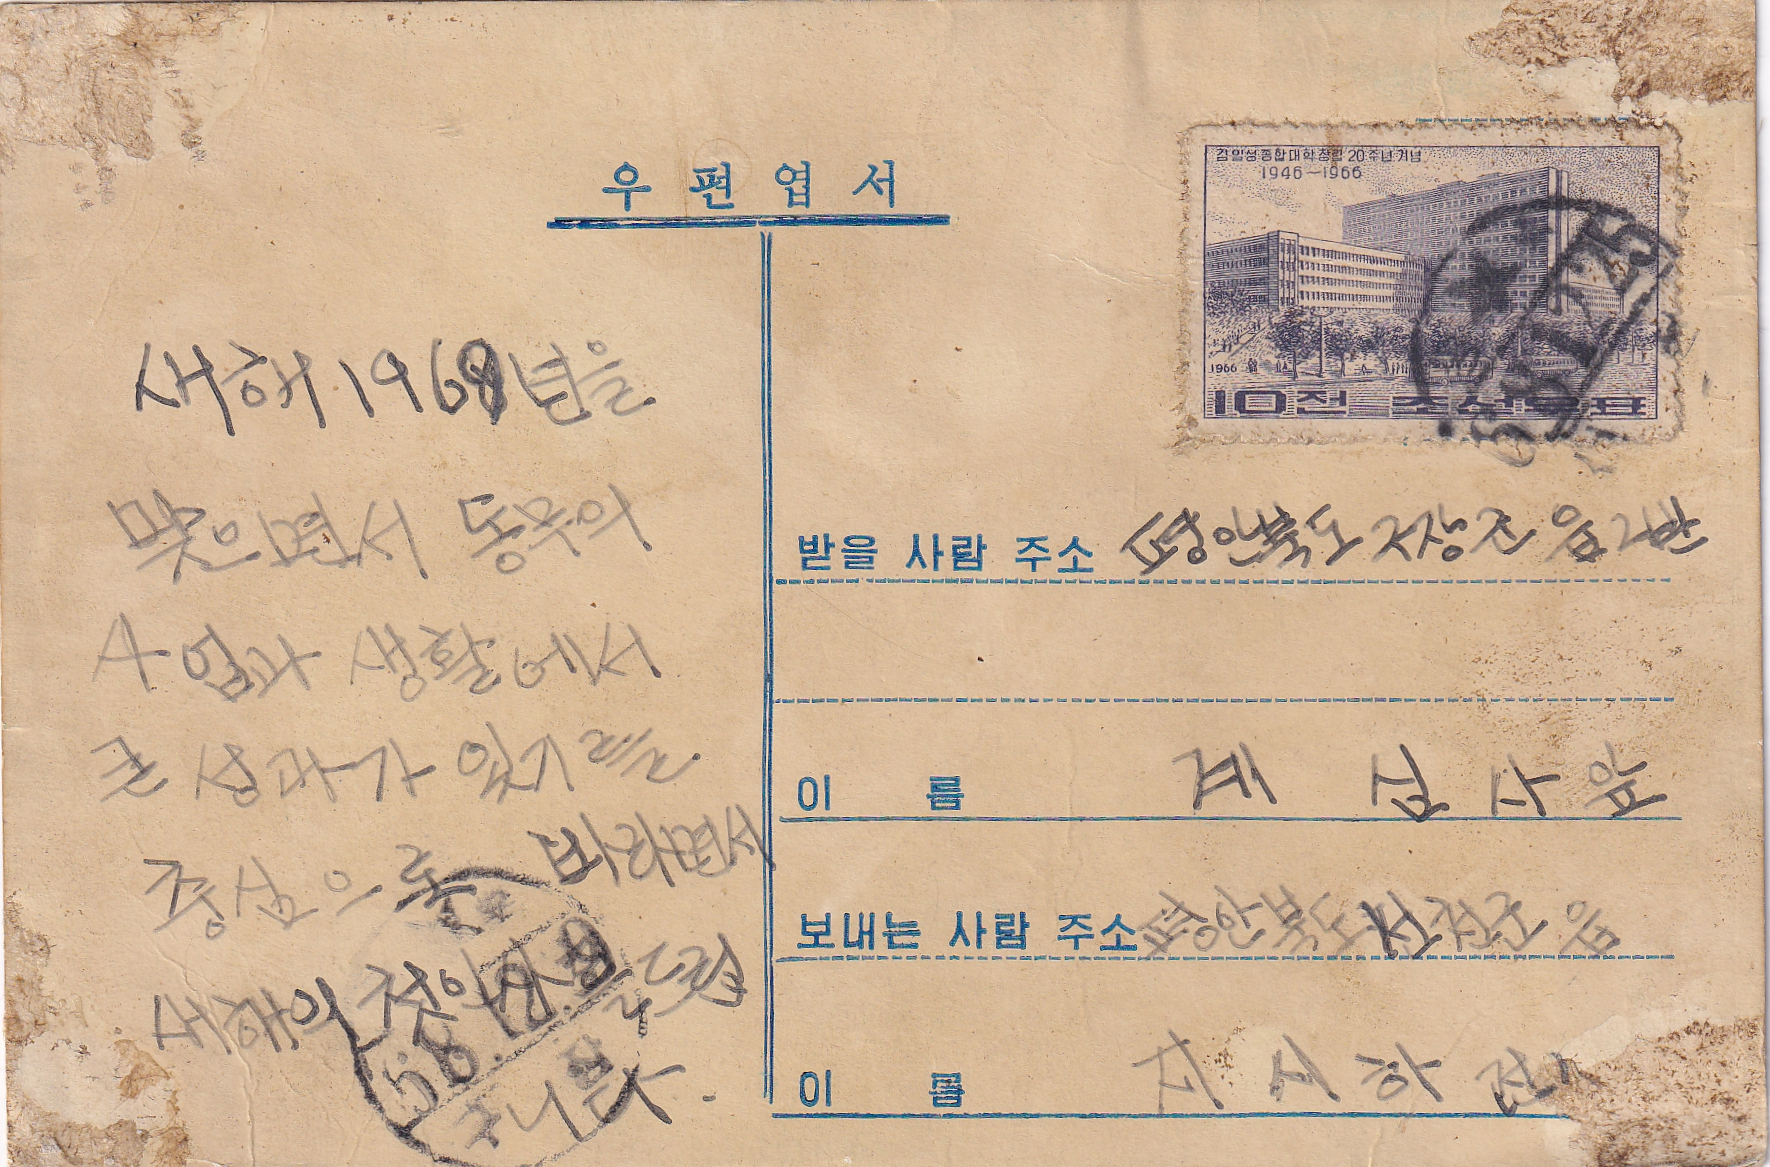 우편엽서
김일성종합대학창립20주년기념
1946-1966
1966
10전 조선우표
새해 1968년을
맞으면서 동무의
사업과 생활에서
큰 성과가 있기를
충심으로 바라면서
새해의 첫인사를 드립
니다.
받을 사람 주소 평안북도 구장군 읍
이 름 계 심 사 앞
보내는 사람 주소 평안북도 운전군 읍
이 름 지 시 하